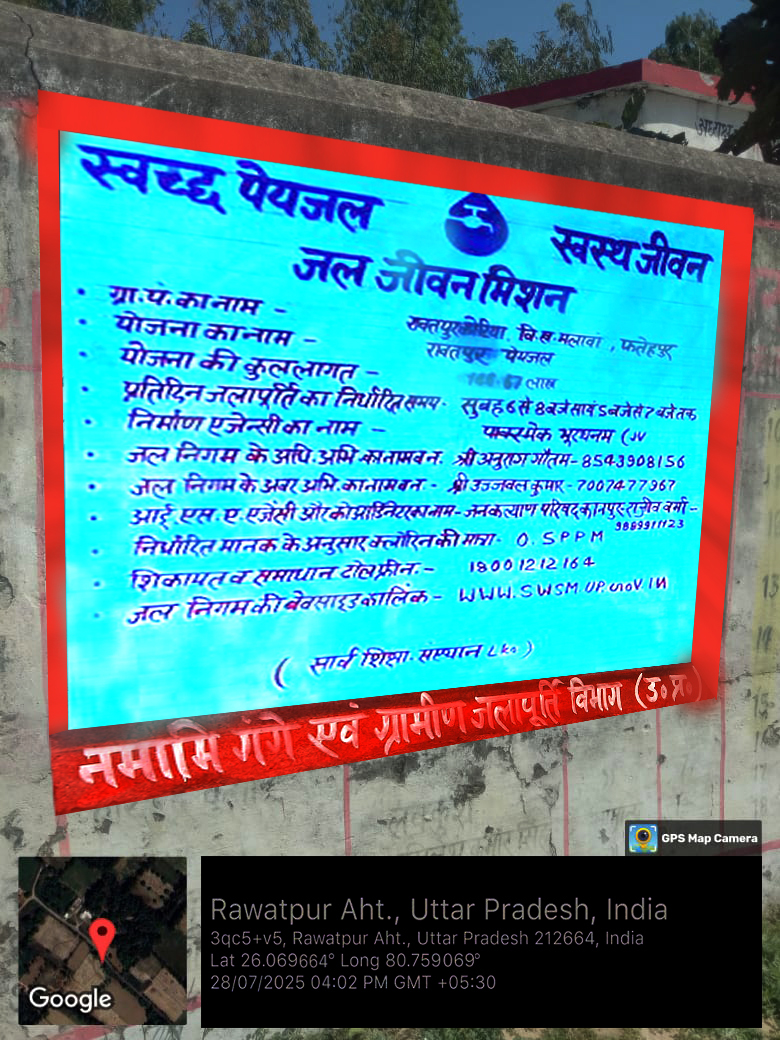 अध्यक्ष
स्वच्छ पेयजल
स्वस्थ जीवन
जल जीवन मिशन
• ग्रा.पं. का नाम - रावतपुर कोरिया. वि.ख. मलावां, फतेहपुर
• योजना का नाम - रावतपुर पेयजल
• योजना की कुल लागत - लाख
• प्रतिदिन जलापूर्ति का निर्धारित समय- सुबह 6 से 8 बजे सायं 5 बजे से 7 बजे तक
• निर्माण एजेन्सी का नाम - (JV
• जल निगम के अधि. अभि. का नाम वन. श्री अनुराग गौतम - 8543908156
• जल निगम के अवर अभि. का नाम वन. - श्री उज्जवल कुमार - 7007477967
• आई. एस. ए. एजेंसी और कोआर्डिनेटर का नाम- जनकल्याण परिषद कानपुर राजीव वर्मा -
9889911123
• निर्धारित मानक के अनुसार क्लोरिन की मात्रा- 0.5 PPM
• शिकायत व समाधान टोल फ्रीन. - 18001212164
• जल निगम की बेवसाइड का लिंक - WWW. SWSM. UP. GOV. IN
( सार्व शिक्षा. संस्थान Lko )
नमामि गंगे एवं ग्रामीण जलापूर्ति विभाग (उ०प्र०)
GPS Map Camera
Rawatpur Aht., Uttar Pradesh, India
3qc5+v5, Rawatpur Aht., Uttar Pradesh 212664, India
Lat 26.069664° Long 80.759069°
28/07/2025 04:02 PM GMT +05:30
Google